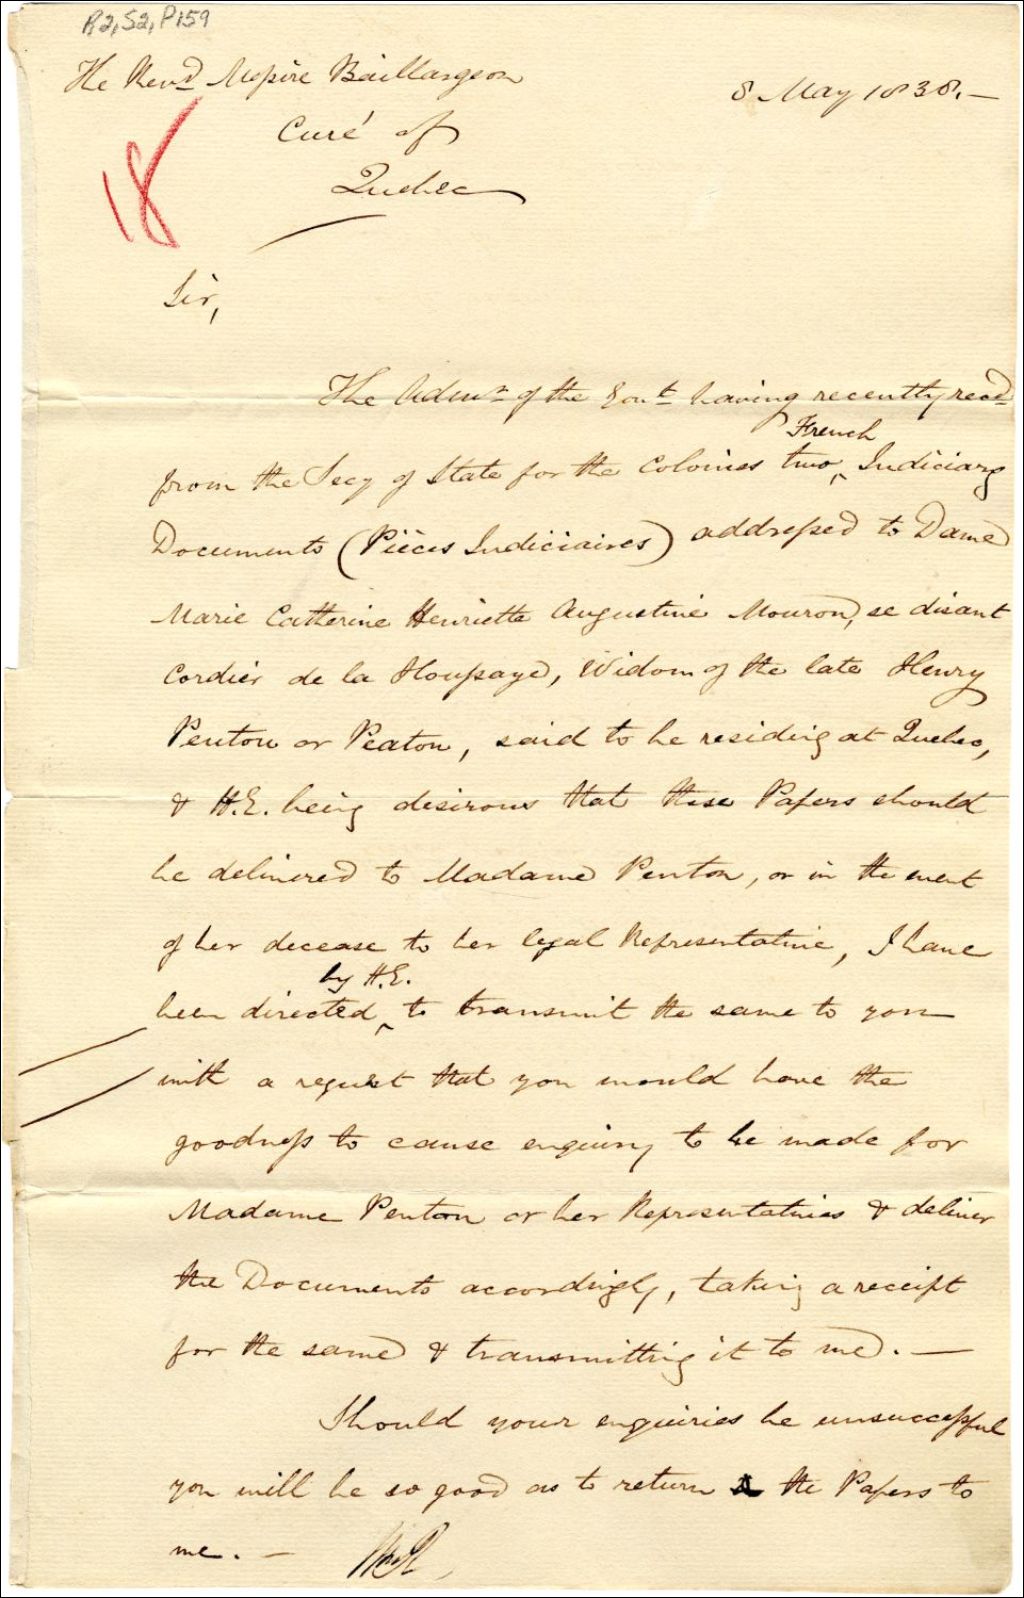 R2, S2, P159
The Revd Messire Baillargeon
8 May 1838.—
Curé of
Quebec
18
Sir,
The Admr of the Govt having recently recd
French
from the Secy of State for the Colonies two ^ Judiciary
Documents (Pièces Judiciaires) addressed to Dame
Marie Catherine Henriette Augustine Mouron, se disant
Cordier de la Houssaye, Widow of the late Henry
Penton or Peaton, said to be residing at Quebec,
& H.E. being desirous that these Papers should
be delivered to Madame Penton, or in the event
of her decease to her legal Representative, I have
by H.E.
been directed ^ to transmit the same to you
with a request that you would have the
goodness to cause enquiry to be made for
Madame Penton or her Representatives & deliver
the Documents accordingly, taking a receipt
for the same & transmitting it to me. —
Should your enquiries be unsuccessful
you will be so good as to return the Papers to
me. —